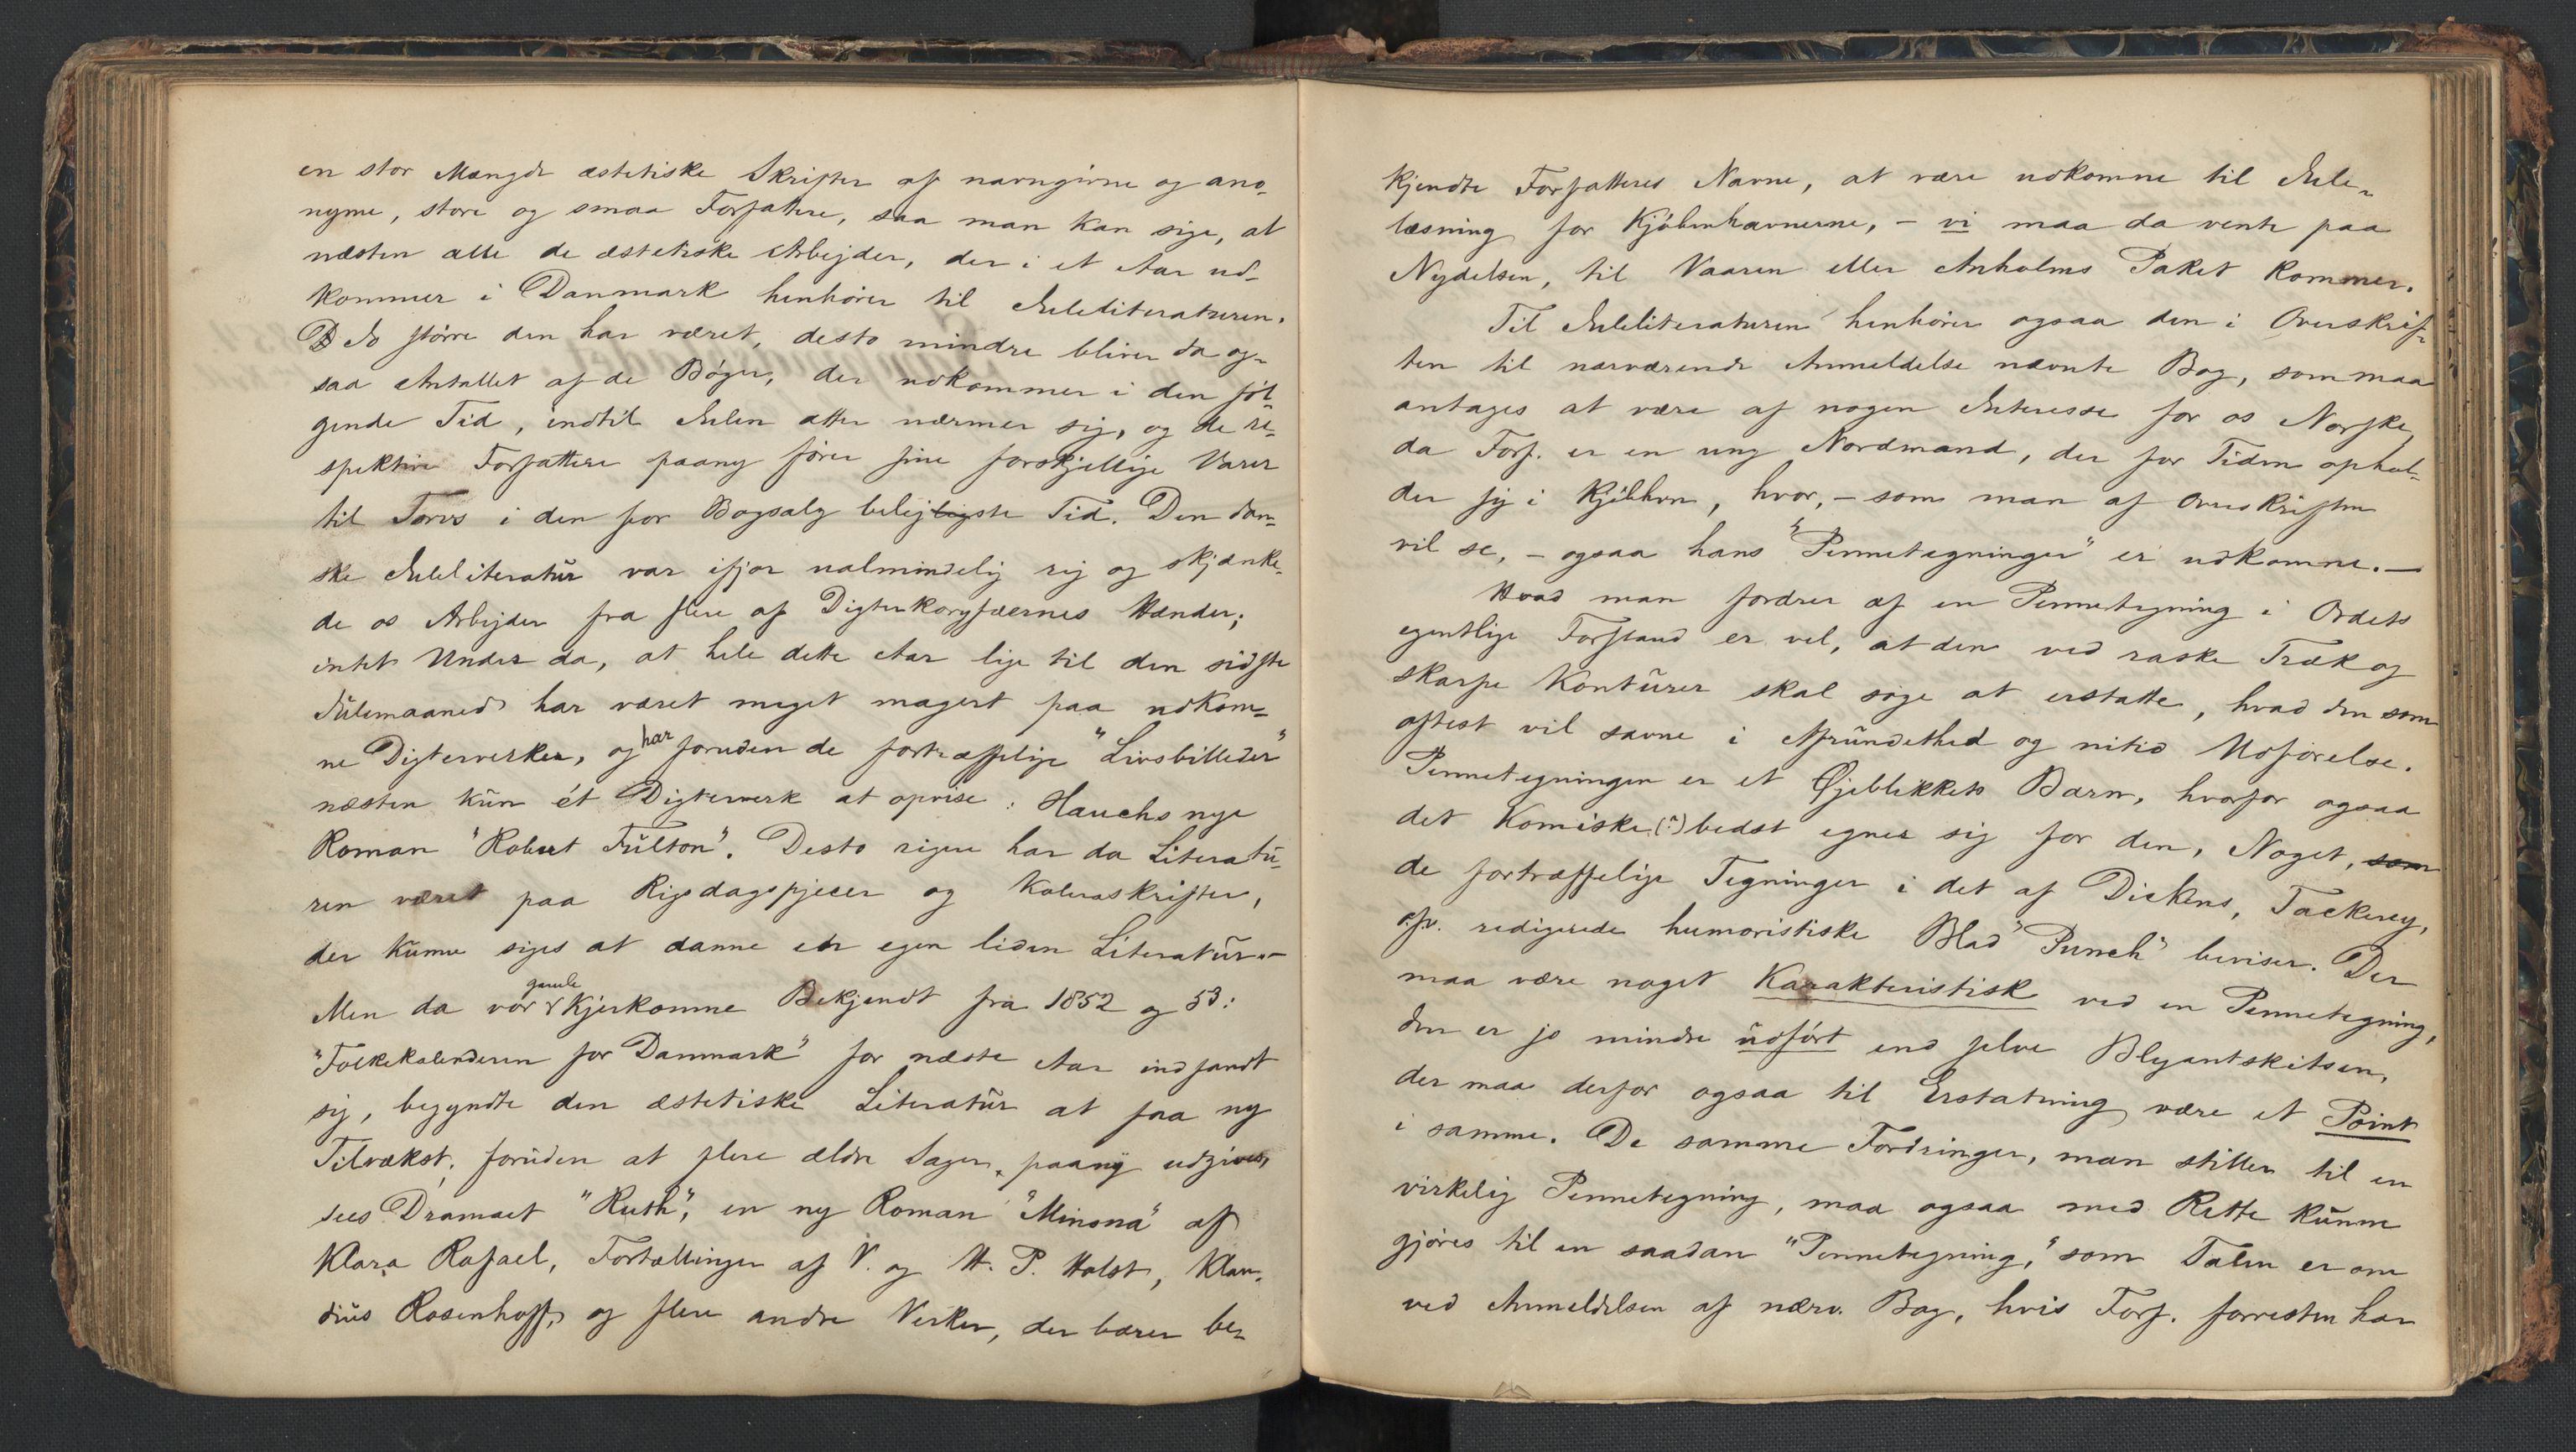 en stor Mængde æstetiske Skrifter af navngivne og ano-
nyme, store og smaa Forfattere, saa man kan sige, at
næsten alle de æstetiske Arbejder, der i et Aar ud-
kommer i Danmark henhører til Juleliteraturen.
Jo større den har været, desto mindre bliver da og-
saa Antallet af de Bøger, der udkommer i den føl-
gende Tid, indtil Julen atter nærmer sig, og de re-
spektive Forfattere paany fører sine forskjellige Varer
til Torvs i den for Bogsalg belejligste Tid. Den dan-
ske Juleliteratur var ifjor ualmindelig rig og skjænke-
de os Arbejder fra flere af Digterkoryfæernes Hænder;
intet Under da, at hele dette Aar lige til den sidste
Julemaaned har været meget magert paa udkom-
ne Digterverker, og har foruden de fortræffelige "Livsbilleder"
næsten kun ét Digterverk at opvise: Hauchs nye
Roman "Robert Fulton". Desto rigere har da Literatu-
ren været paa Rigsdagspjecer og Koleraskrifter,
der kunne siges at danne en egen liden Literatur. –
Men da vor gamle Kjerkomne Bekjendt fra 1852 og 53:
"Folkekalenderen for Danmark" for næste Aar indfandt
sig, begyndte den æstetiske Literatur at faa ny
Tilvækst; foruden at flere ældre Sager, paany udgives,
sees Dramaet "Ruth", en ny Roman "Minona" af
Klara Rafael, Fortællinger af V. og H. P. Holst, Klau-
dius Rosenhoff, og flere andre Verker, der bærer be-
kjendte Forfatteres Navne, at være udkomne til Jule-
læsning for Kjøbenhavnerne, – vi maa da vente paa
Nydelsen, til Vaaren eller Anholms Paket kommer.
Til Juleliteraturen henhører ogsaa den i Overskrif-
ten til nærværende Anmeldelse nævnte Bog, som maa
antages at være af nogen Interesse for os Norske,
da Forf. er en ung Nordmand, der for Tiden ophol-
der sig i Kjøbhvn, hvor, – som man af Overskriften
vil se, – ogsaa hans "Pennetegninger" er udkomne. –
Hvad man fordrer af en Pennetegning i Ordets
egentlige Forstand er vel, at den ved raske Træk og
skarpe Konturer skal søge at erstatte, hvad den som
oftest vil savne i Afrundethed og nitid Udførelse.
Pennetegningen er et Øjeblikkets Barn, hvorfor ogsaa
det Komiske (?) bedst egner sig for den, Noget, som
de fortræffelige Tegninger i det af Dickens, Tackerey,
ofv. redigerede humoristiske Blad "Punch" beviser. Der
maa være noget Karakteristisk ved en Pennetegning,
den er jo mindre udført end selve Blyantskitsen,
der maa derfor ogsaa til Erstatning være et Point
i samme. De samme Fordringer, man stiller til en
virkelig Pennetegning, maa ogsaa med Rette kunne
gjøres til en saadan "Pennetegning," som Talen er om
ved Anmeldelsen af nærv. Bog, hvis Forf. forresten har